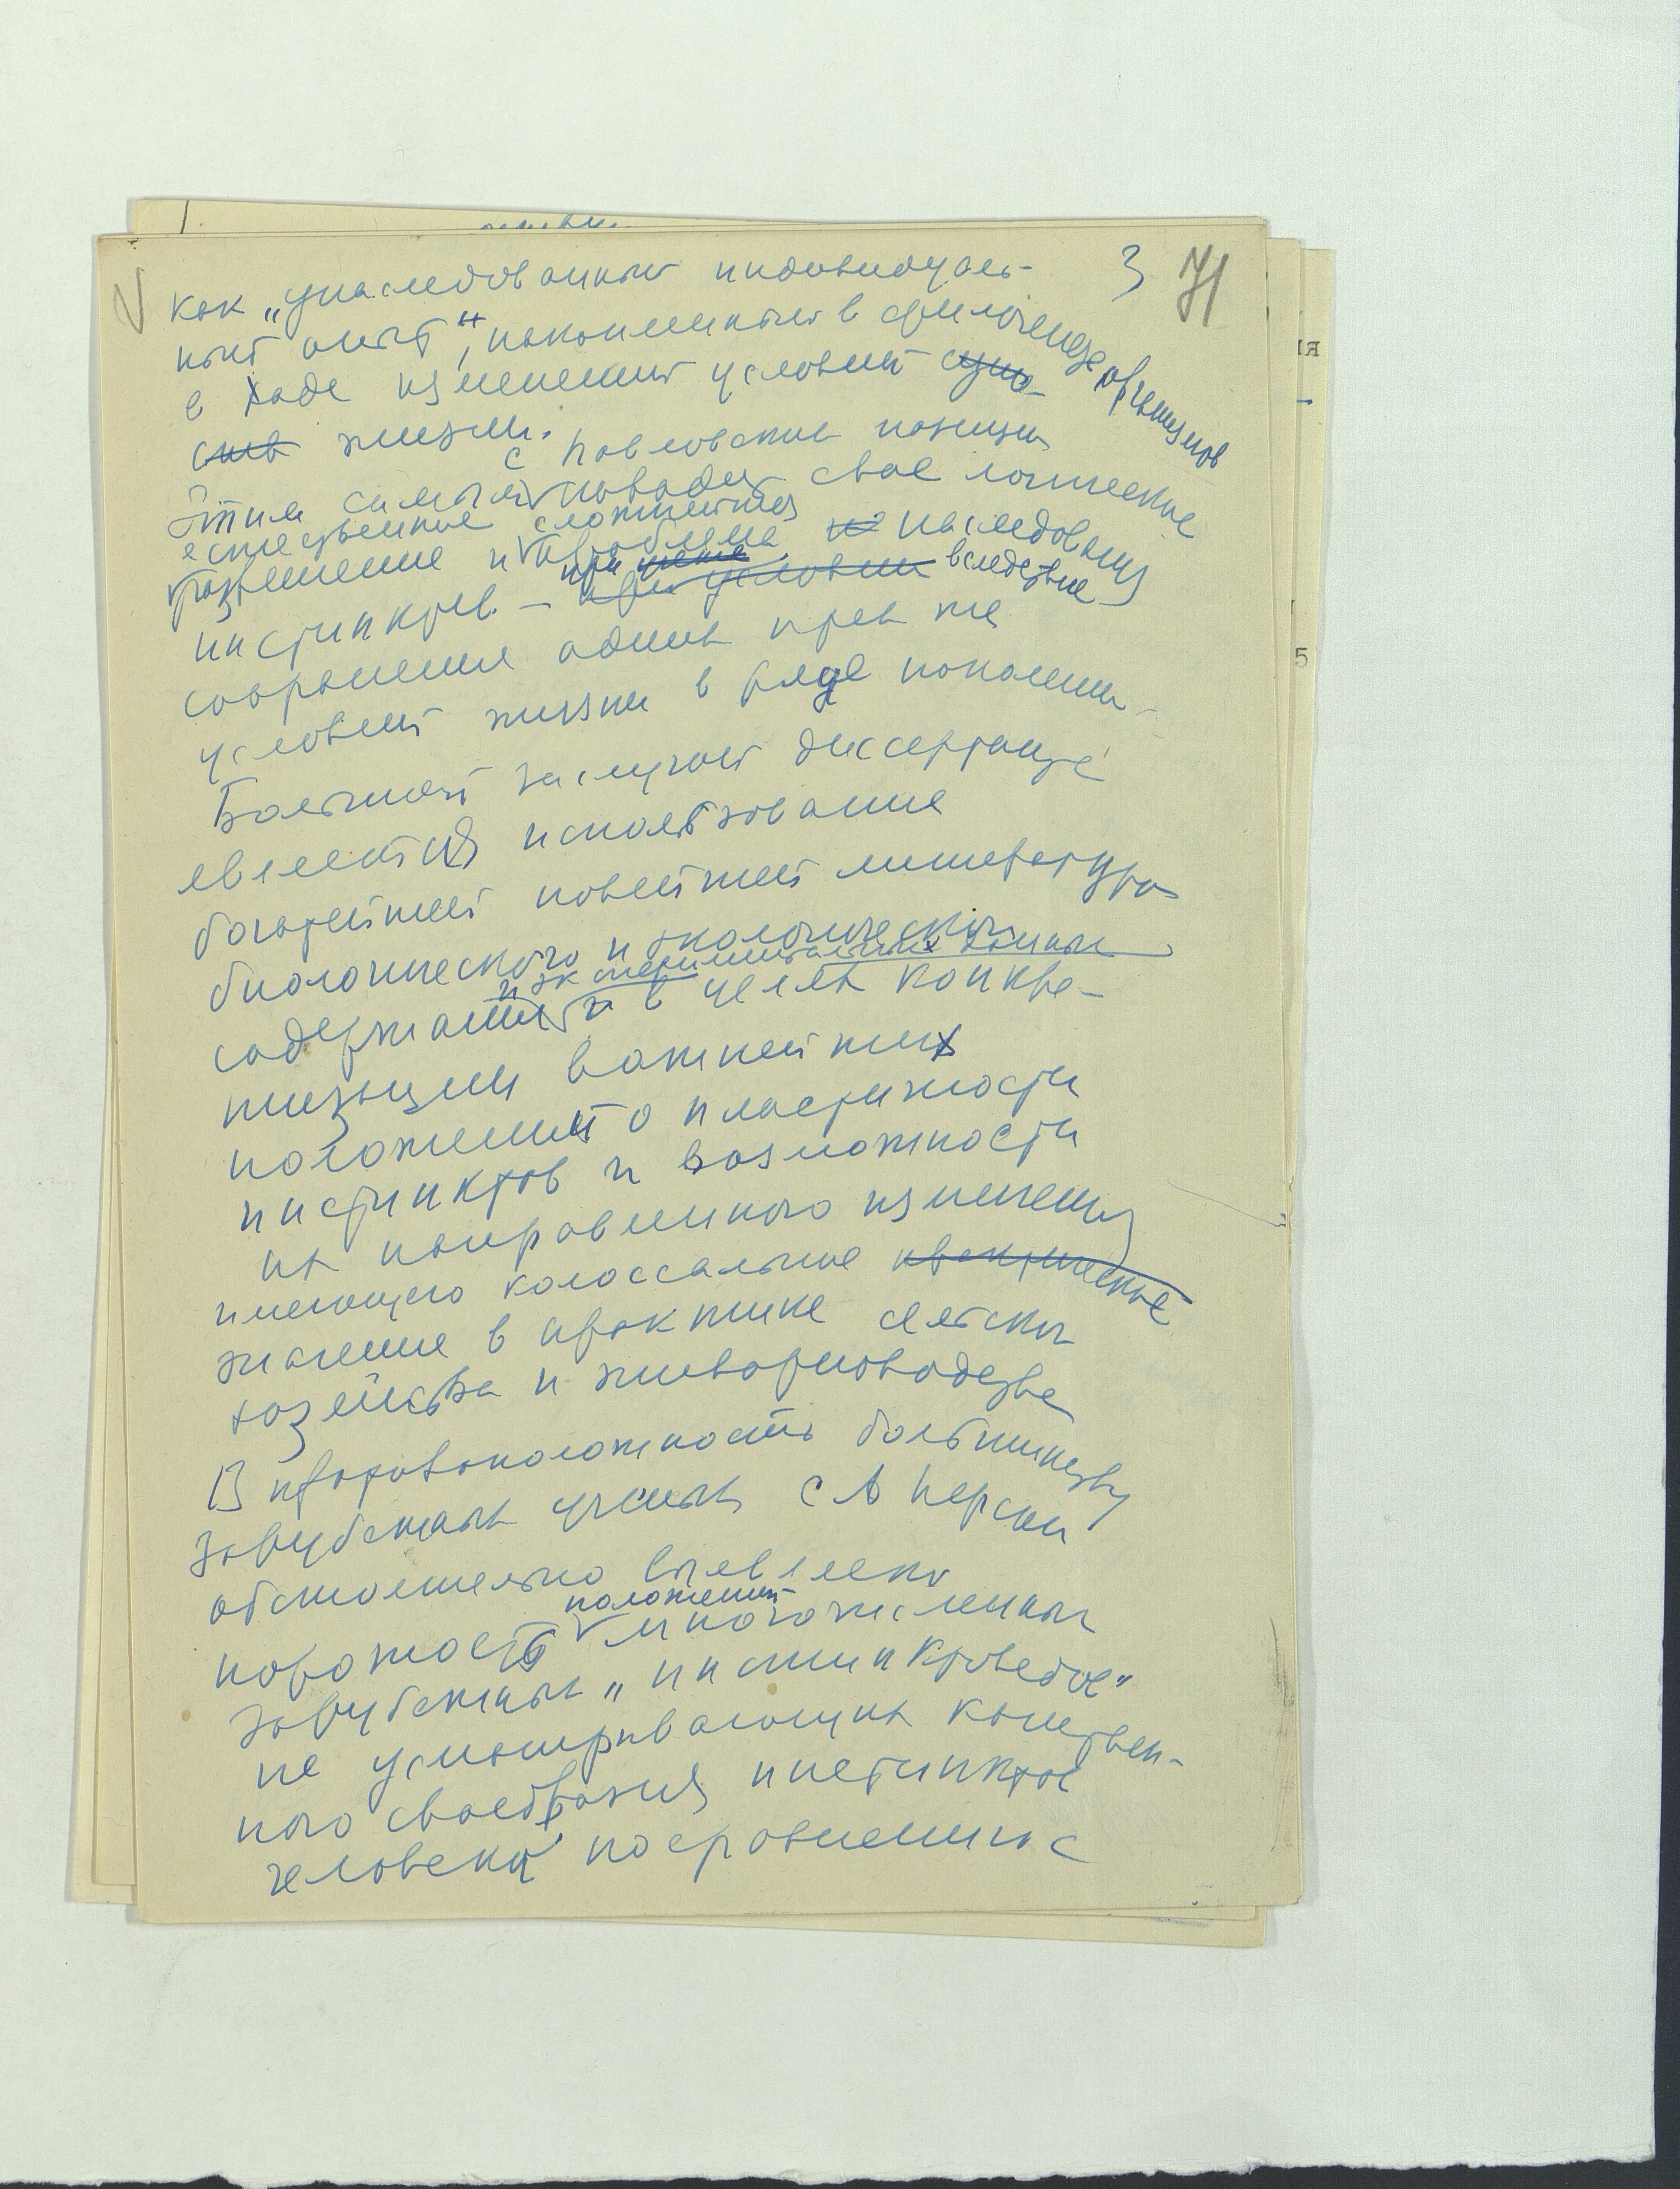 3 71
как „унаследованный индивидуаль-
ный опыт", накопленный в филогенезе организмов
в ходе изменений условий суще-
ств жизни.
Этим самым с Павловских позиций
находит свое логическое
естественное
разрешение и сложнейшая проблема наследования
инстинктов — при условии вследствие
сохранения одних и тех же
условий жизни в ряде поколений.
Большой заслугой диссертанта
является использование
богатейшей новейшей литературы
биологического и экологического
и экспериментальных данных
содержания и в целях конкре-
тизации важнейших
положений о пластичности
инстинктов и возможности
их направленного изменения
имеющего колоссальное практическое
значение в практике сельского
хозяйства и животноводства
В противоположность большинству
зарубежных ученых С А Перси
обстоятельно выявлена
порочность положений многочисленных
зарубежных „инстинктоведов"
не усматривающих качествен-
ного своеобразия инстинктов
человека по сравнению с